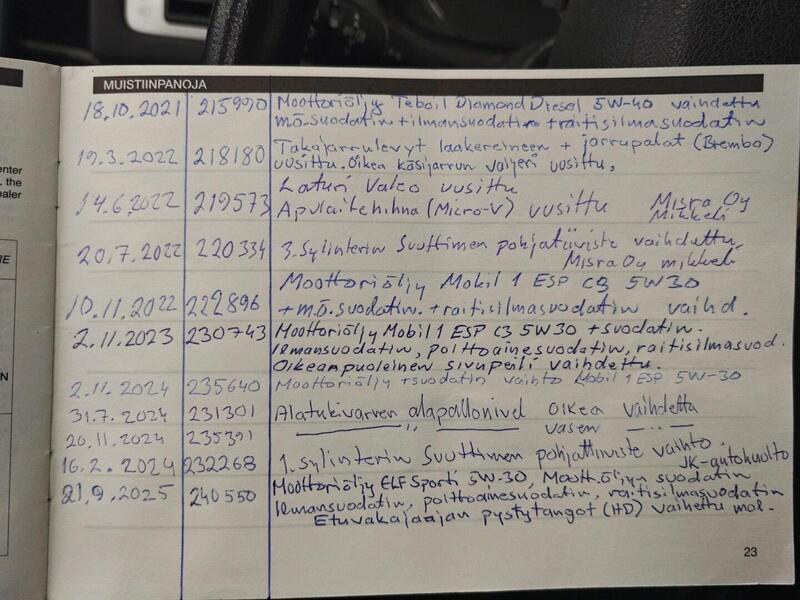 MUISTIINPANOJA
18.10.2021 215990 Moottoriöljy Teboil Diamond Diesel 5W-40 vaihdettu
mö.suodatin + ilmansuodatin + raitisilmasuodatin
19.3.2022 218180 Takajarrulevyt laakereineen + jarrupalat (Brembo)
uusittu. Oikea käsijarrun vaijeri uusittu,
Laturi Valeo uusittu
14.6.2022 219573 Apulaitehihna (Micro-V) uusittu Misra Oy
Mikkeli
20.7.2022 220334 3.sylinterin suuttimen pohjatiiviste vaihdettu,
Misra Oy mikkeli
Moottoriöljy Mobil 1 ESP C3 5W30
10.11.2022 222896 + mö.suodatin. + raitisilmasuodatin vaihd.
2.11.2023 230743 Moottoriöljy Mobil 1 ESP C3 5W30 + suodatin.
Ilmansuodatin, polttoainesuodatin, raitisilmasuod.
Oikeanpuoleinen sivupeili vaihdettu.
2.11.2024 235640 Moottoriöljy + suodatin vaihto Mobil 1 ESP 5W-30
31.7.2024 231301 Alatukivarren alapallonivel oikea vaihdettu
20.11.2024 235391 " vasen — " —
16.2.2024 232268 1.sylinterin suuttimen pohjatiiviste vaihto.
JK-autohuolto
21.9.2025 240550 Moottoriöljy ELF Sporti 5W-30, Moott.öljyn suodatin
Ilmansuodatin, polttoainesuodatin, raitisilmasuodatin
Etuvakaajaajan pystytangot (HD) vaihettu mol.
23
enter
, the
ealer
RE
N